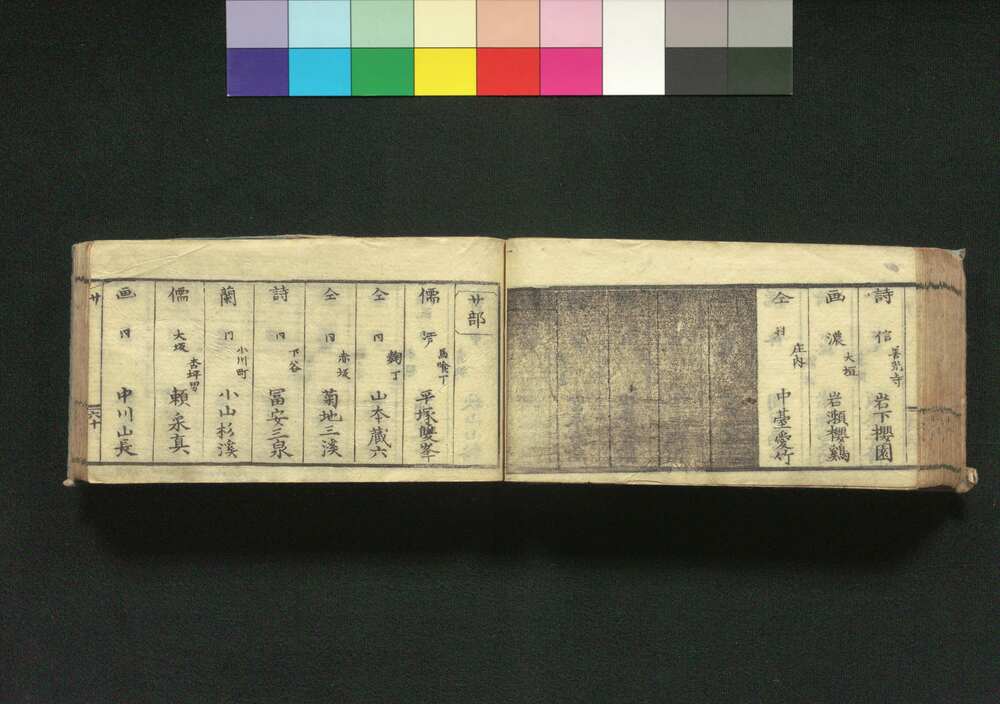 詩 信 善光寺 岩下櫻園
画 濃 大垣 岩瀬櫻鷄
仝 羽 庄内 中臺愛竹
サ部
儒 馬喰丁 平塚雙峯
仝 同 麹丁 山本蔵六
仝 同 赤坂 菊地三溪
詩 同 下谷 冨安三泉
蘭 同 小川町 小山杉溪
儒 大坂 杏坪男 頼永真
画 同 中川山長
サ
六十